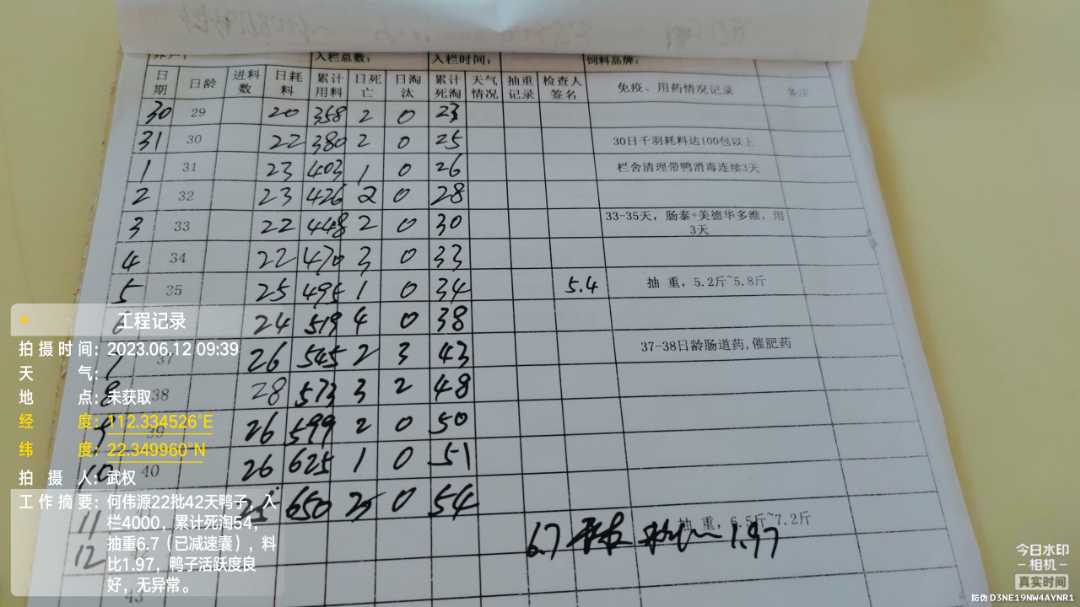 入栏总数： 入栏时间： 饲料品牌：
日期 日龄 进料数 日耗料 累计用料 日死亡 日淘汰 累计死淘 天气情况 抽重记录 检查人签名 免疫、用药情况记录 备注
30 29 20 358 2 0 23
31 30 22 380 2 0 25 30日千羽耗料达100包以上
1 31 23 403 1 0 26 栏舍清理带鸭消毒连续3天
2 32 23 426 2 0 28
3 33 22 448 2 0 30 33-35天，肠泰+美德华多维，用3天
4 34 22 470 3 0 33
5 35 25 495 1 0 34 5.4 抽 重，5.2斤~5.8斤
6 24 519 4 0 38
7 37 26 545 2 3 43 37-38日龄肠道药,催肥药
8 38 28 573 3 2 48
9 39 26 599 2 0 50
10 40 26 625 1 0 51
11 25 650 3 0 54 抽 重，6.5斤~7.2斤
12 6.7 1.97
43
工程记录
拍摄时间：2023.06.12 09:39
天 气：
地 点：未获取
经 度：112.334526°E
纬 度：22.349960°N
拍 摄 人：武权
工作摘要：何伟源22批42天鸭子，入
栏4000，累计死淘54，
抽重6.7（已减速囊），料
比1.97，鸭子活跃度良
好，无异常。
今日水印
-相机-
真实时间
防伪 D3NE19NW4AYNR1